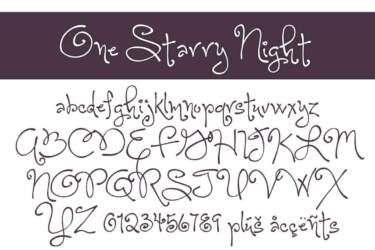 One Starry Night
abcdefghijklmnopqrstuvwxyz
ABCDEFGHIJKLM
NOPQRSTUVWX
YZ 0123456789 plüš åççèñts